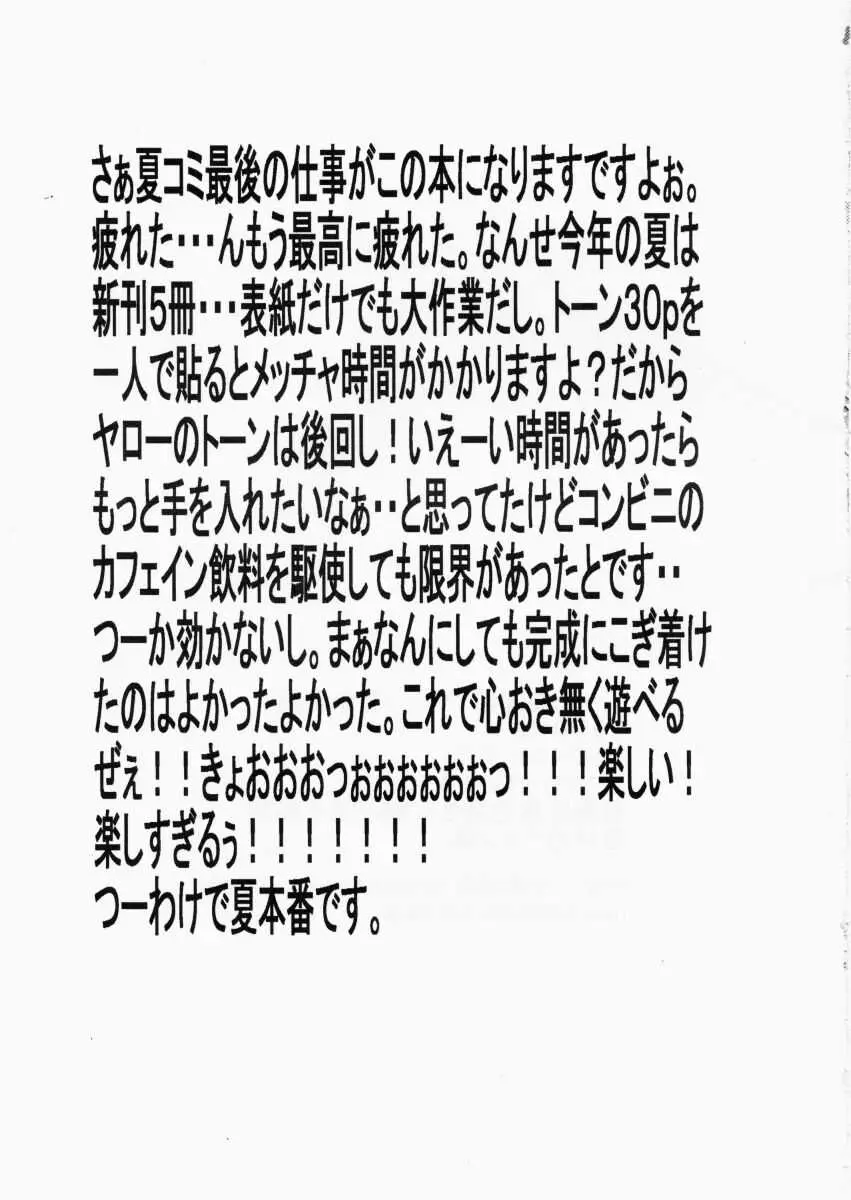 さぁ夏コミ最後の仕事がこの本になりますですよぉ。
疲れた･･･んもう最高に疲れた。なんせ今年の夏は
新刊５冊･･･表紙だけでも大作業だし。トーン３０ｐを
一人で貼るとメッチャ時間がかかりますよ？だから
ヤローのトーンは後回し！いえーい時間があったら
もっと手を入れたいなぁ･･と思ってたけどコンビニの
カフェイン飲料を駆使しても限界があったとです･･
つーか効かないし。まぁなんにしても完成にこぎ着け
たのはよかったよかった。これで心おき無く遊べる
ぜぇ！！きょおおおっぉぉぉぉぉぉっ！！！楽しい！
楽しすぎるぅ！！！！！！！
つーわけで夏本番です。